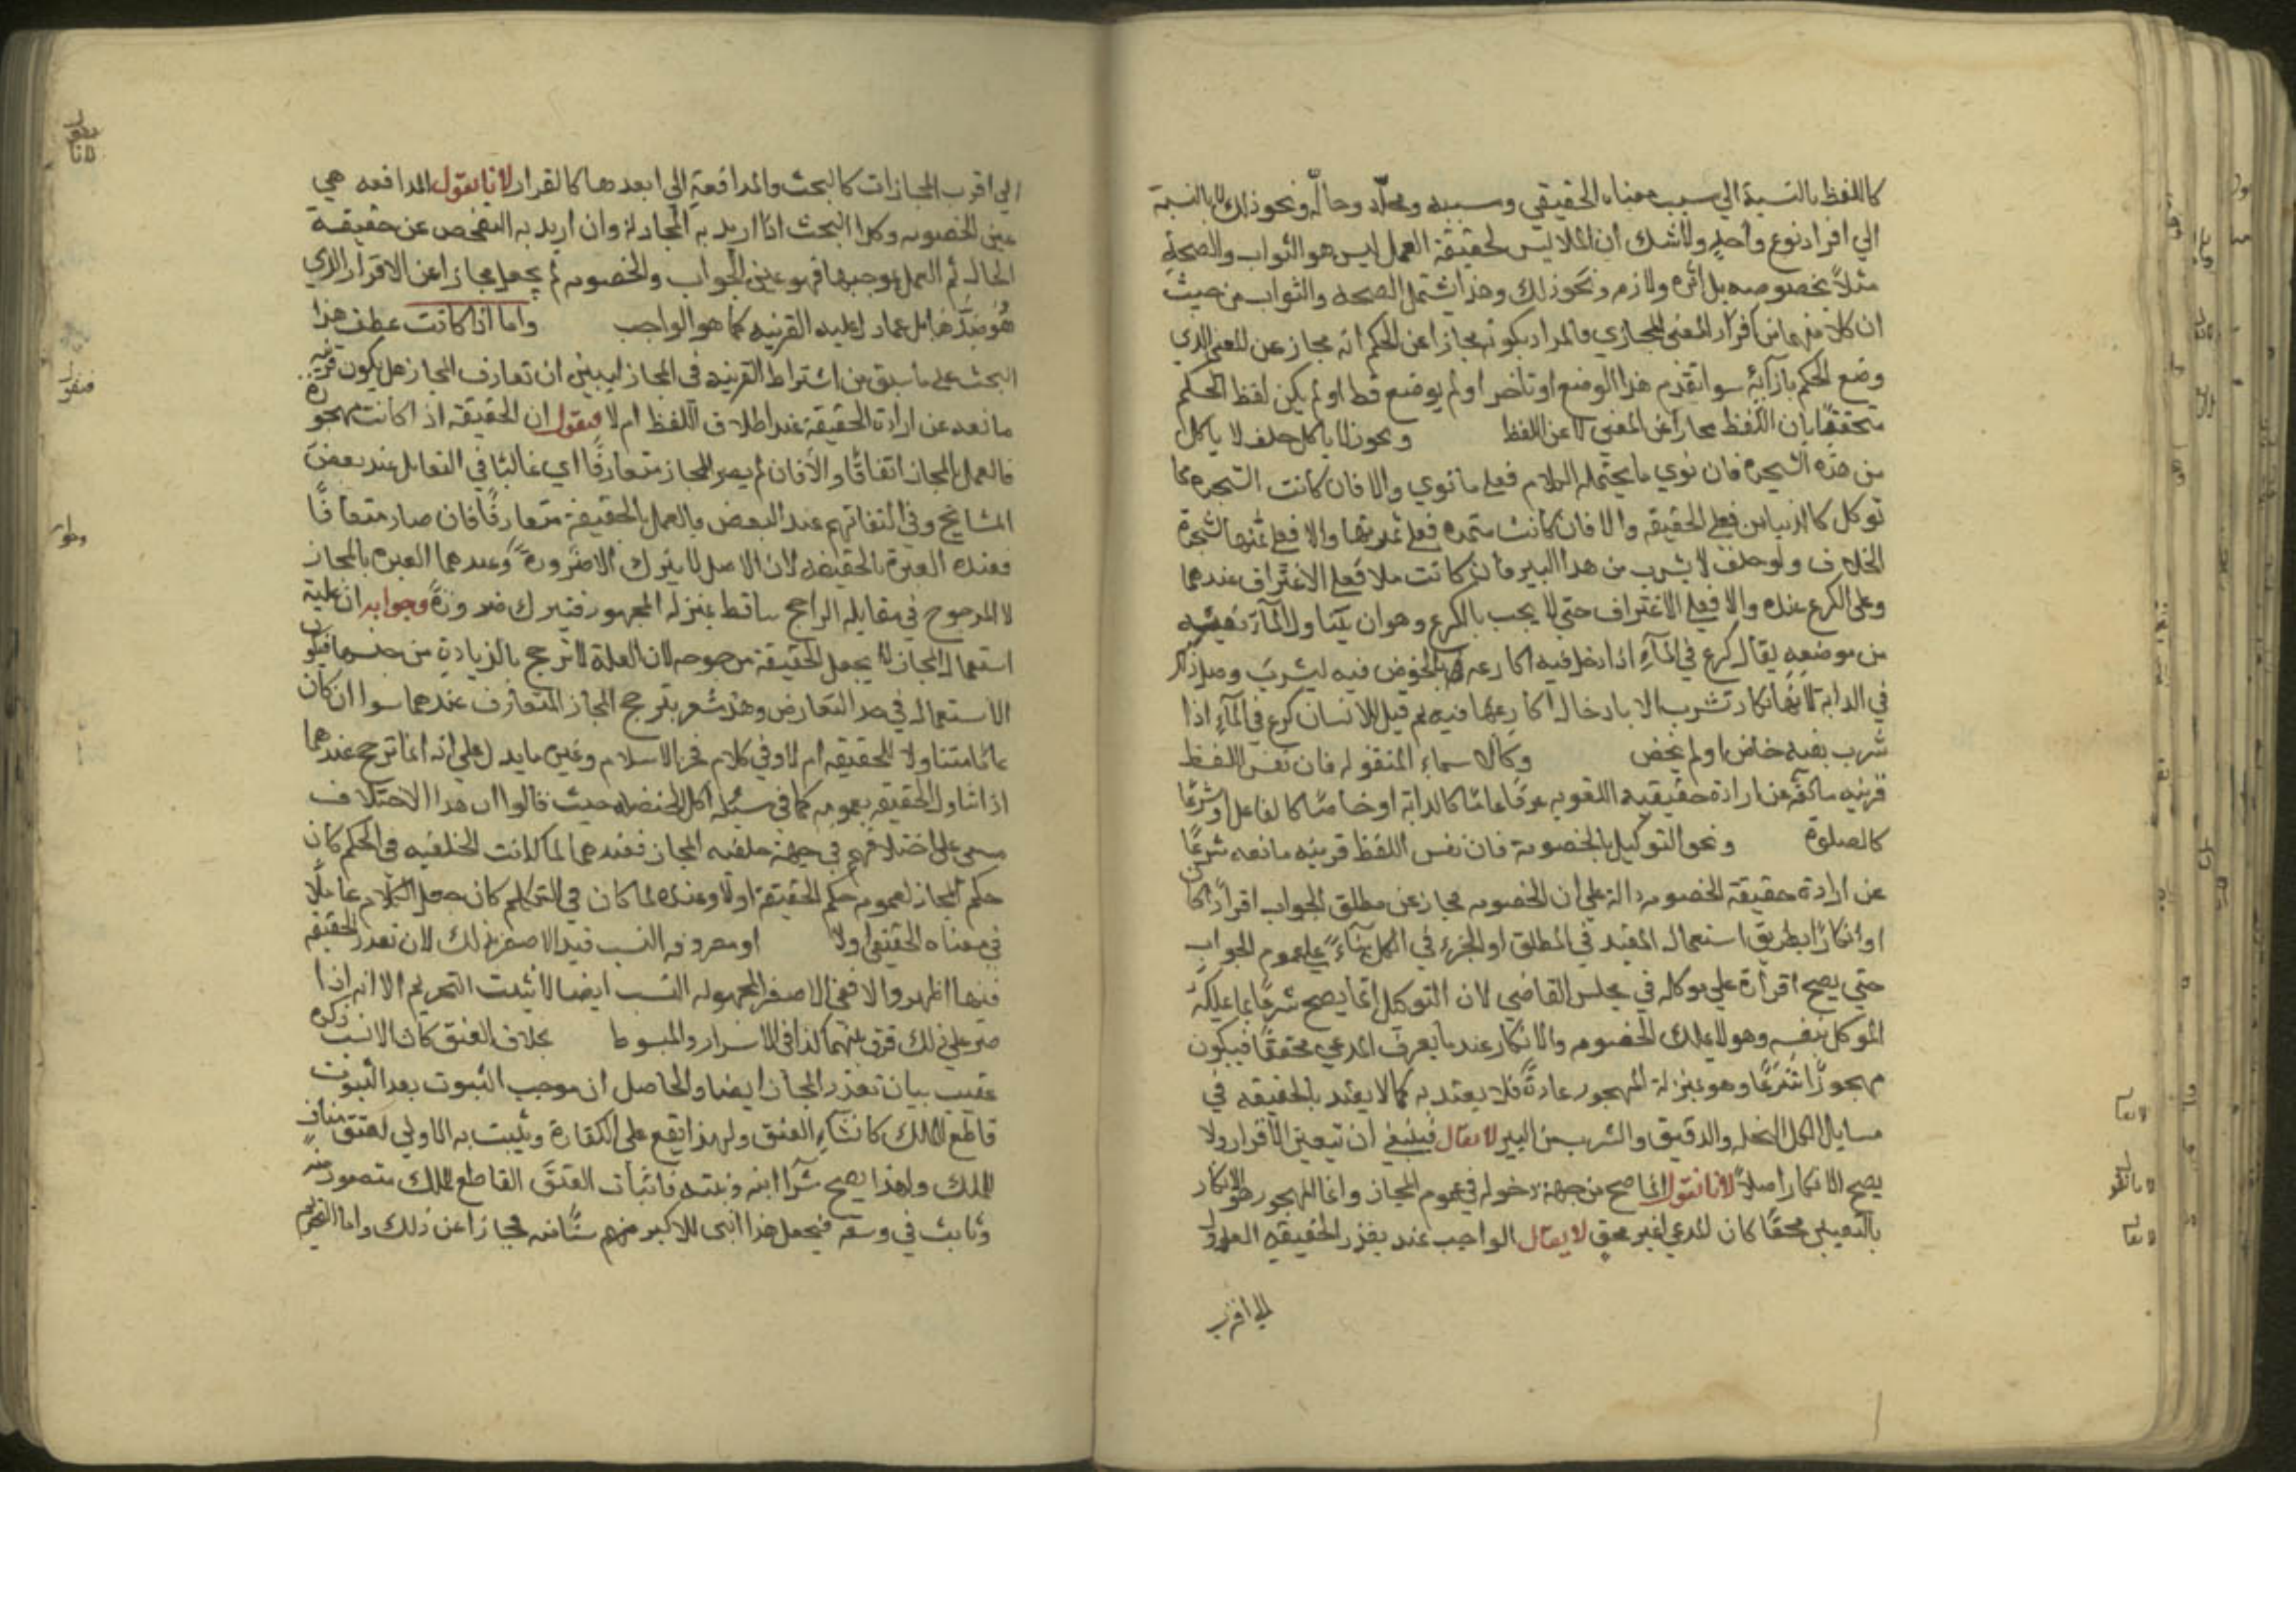 كاللفظ بالنسبة الي سبب معناه الحقيقي وسببه ومحله وحاله ونحو ذلك لا بالنسبة
الي افراد نوع واحد ولا شك ان الملابس لحقيقة العمل ليس هو الثواب والصحة
مثلاً بخصوصه بل اثره ولازمه ونحو ذلك وهذا يشتمل الصحة والثواب من حيث
ان كلا منهما من افراد المعني المجازي فالمراد بكونه مجازا عن الحكم انه مجاز عن المعني الذي
وضع الحكم بازآئه سوا تقدم هذا الوضع او تاخر او لم يوضع قط او لم يكن لفظ الحكم
متحققا بان اللفظ مجازا عن المعني لا عن اللفظ ونحو لا ياكل حلف لا ياكل
من هذه الشجره فان نوي ما يحتمله الكلام فعلي ما نوي والا فان كانت الشجره مما
توكل كالريباس فعلي الحقيقه والا فان كانت مثمره فعلي ثمرتها والا فعلي ثمنها شجرة
الخلاف ولو حلف لا يشرب من هذا البير فان كانت ملا فعلي الاغتراف عندهما
وعلي الكرع عنده والا فعلي الاغتراف حتي لا يجب بالكرع وهو ان يتناول المآء بفيه
من موضعه يقال كرع في المآء اذا دخل فيه اكارعه بالخوض فيه ليشرب
في الدابة لانها لا تكاد تشرب الا بادخال اكارعها فيه ثم قيل للانسان كرع في المآء اذا
شرب بفيه خاض او لم يخض وكالاسماء المنقوله فان نفس اللفظ
قرينه مانعة عن ارادة حقيقيه اللغويه عرفا عاما كالدابة او خاصا كالفاعل او شرعا
كالصلوة ونحو التوكيل بالخصومة فان نفس اللفظ قرينه مانعه شرعا
عن ارادة حقيقة الخصومه دالة علي ان الخصومه مجاز عن مطلق الجواب اقرارا كان
او انكارا بطريق استعمال المقيد في المطلق او الجزء في الكل بناء علي عموم الجواب
حتي يصح اقراره علي موكله في مجلس القاضي لان التوكيل انما يصح شرعا بما يملكه
الموكل بنفسه وهو لا يملك الخصومه والانكار عند ما يعرف المدعي محققا فيكون
مهجورا شرعا وهو بمنزلة المهجور عادة فلا يعتد به كما لا يعتد بالحقيقه في
مسايل اكل النخله والدقيق والشرب من البير لا يقال فينبغي ان يتعين الاقرار ولا
يصح الانكار اصلا لانا نقول انما صح من جهة دخوله في عموم المجاز وانما المهجور هو الانكار
بالتعيين محقا كان المدعي او غير محق لا يقال الواجب عند تعذر الحقيقه العدول
الي اقرب
لا يقال
لانا نقول
لا يقال
الي اقرب المجازات كالبحث والمدافعة الي ابعدها كالاقرار لانا نقول المدافعه هي
عين الخصومه وكذا البحث اذا اريد به المجادلة وان اريد به التفحص عن حقيقة
الحال ثم العمل بموجبها فهو عين الجواب والخصومه لم يجعل مجازا عن الاقرار الذي
هو ضدها بل عما دل عليه القرينه كما هو الواجب واما اذا كانت عطف هذا
البحث علي ما سبق من اشتراط القرينه في المجاز ليبين ان تعارف المجاز هل يكون قرينه
مانعه عن ارادة الحقيقة عند اطلاق اللفظ ام لا فيقول ان الحقيقه اذا كانت مهجورة
فالعمل بالمجاز اتفاقا والا فان لم يصر المجاز متعارفا اي غالبا في التعامل عند بعض
المشايخ وفي التفاهم عند البعض فالعمل بالحقيقة فان صار متعارفا
فعنده العبرة بالحقيقه لان الاصل لا يترك الا ضرورة وعندهما العبره بالمجاز
لان المرجوح في مقابله الراجح ساقط بمنزله المهجور فيترك ضرورة وجوابه ان غلبة
استعمال المجاز لا يجعل الحقيقة مرجوحه لان العلة لا ترجح بالزيادة من جنسها فيكون
الاستعمال في حد التعارض وهذا مشعر بترجح المجاز المتعارف عندهما سوا ان كان
عاما متناولا للحقيقه ام لا وفي كلام فخر الاسلام وغيره ما يدل علي انه انما ترجح عندهما
اذا تناول الحقيقه بعمومه كما في مسئله اكل الحنطه حيث قالوا ان هذا الاختلاف
مبني علي اختلافهم في جهة خلفيه المجاز فعندهما لما كانت الخلفيه في الحكم كان
حكم المجاز لعمومه حكم الحقيقة اولا وعنده لما كان في التكلم كان جعل الكلام عاملا
في معناه الحقيقي اولا او معروفه النسب قيد الاصغر بذلك لان تعذر الحقيقه
فيها اظهر والا ففي الاصغر المجهوله النسب ايضا لا يثبت التحريم الا انه اذا
صر علي ذلك فرق بينهما كذا في الاسرار والمبسوط بخلاف العتق كان الانسب ذكره
عقيب بيان تعذر المجاز ايضا والحاصل ان موجب النبوت بعد الثبوت
قاطع للملك كانشاء العتق ولهذا يقع علي الكفارة ويثبت به الولاء لا عتق مناف
للملك ولهذا يصح شرآ ابنه وبنته فاثبات العتق القاطع للملك متصور منه
وثابت في وسعه فيجعل هذا ابني للاكبر منه سنا مجازا عن ذلك واما التحريم
لانا نقول
فيقول
وجوابه